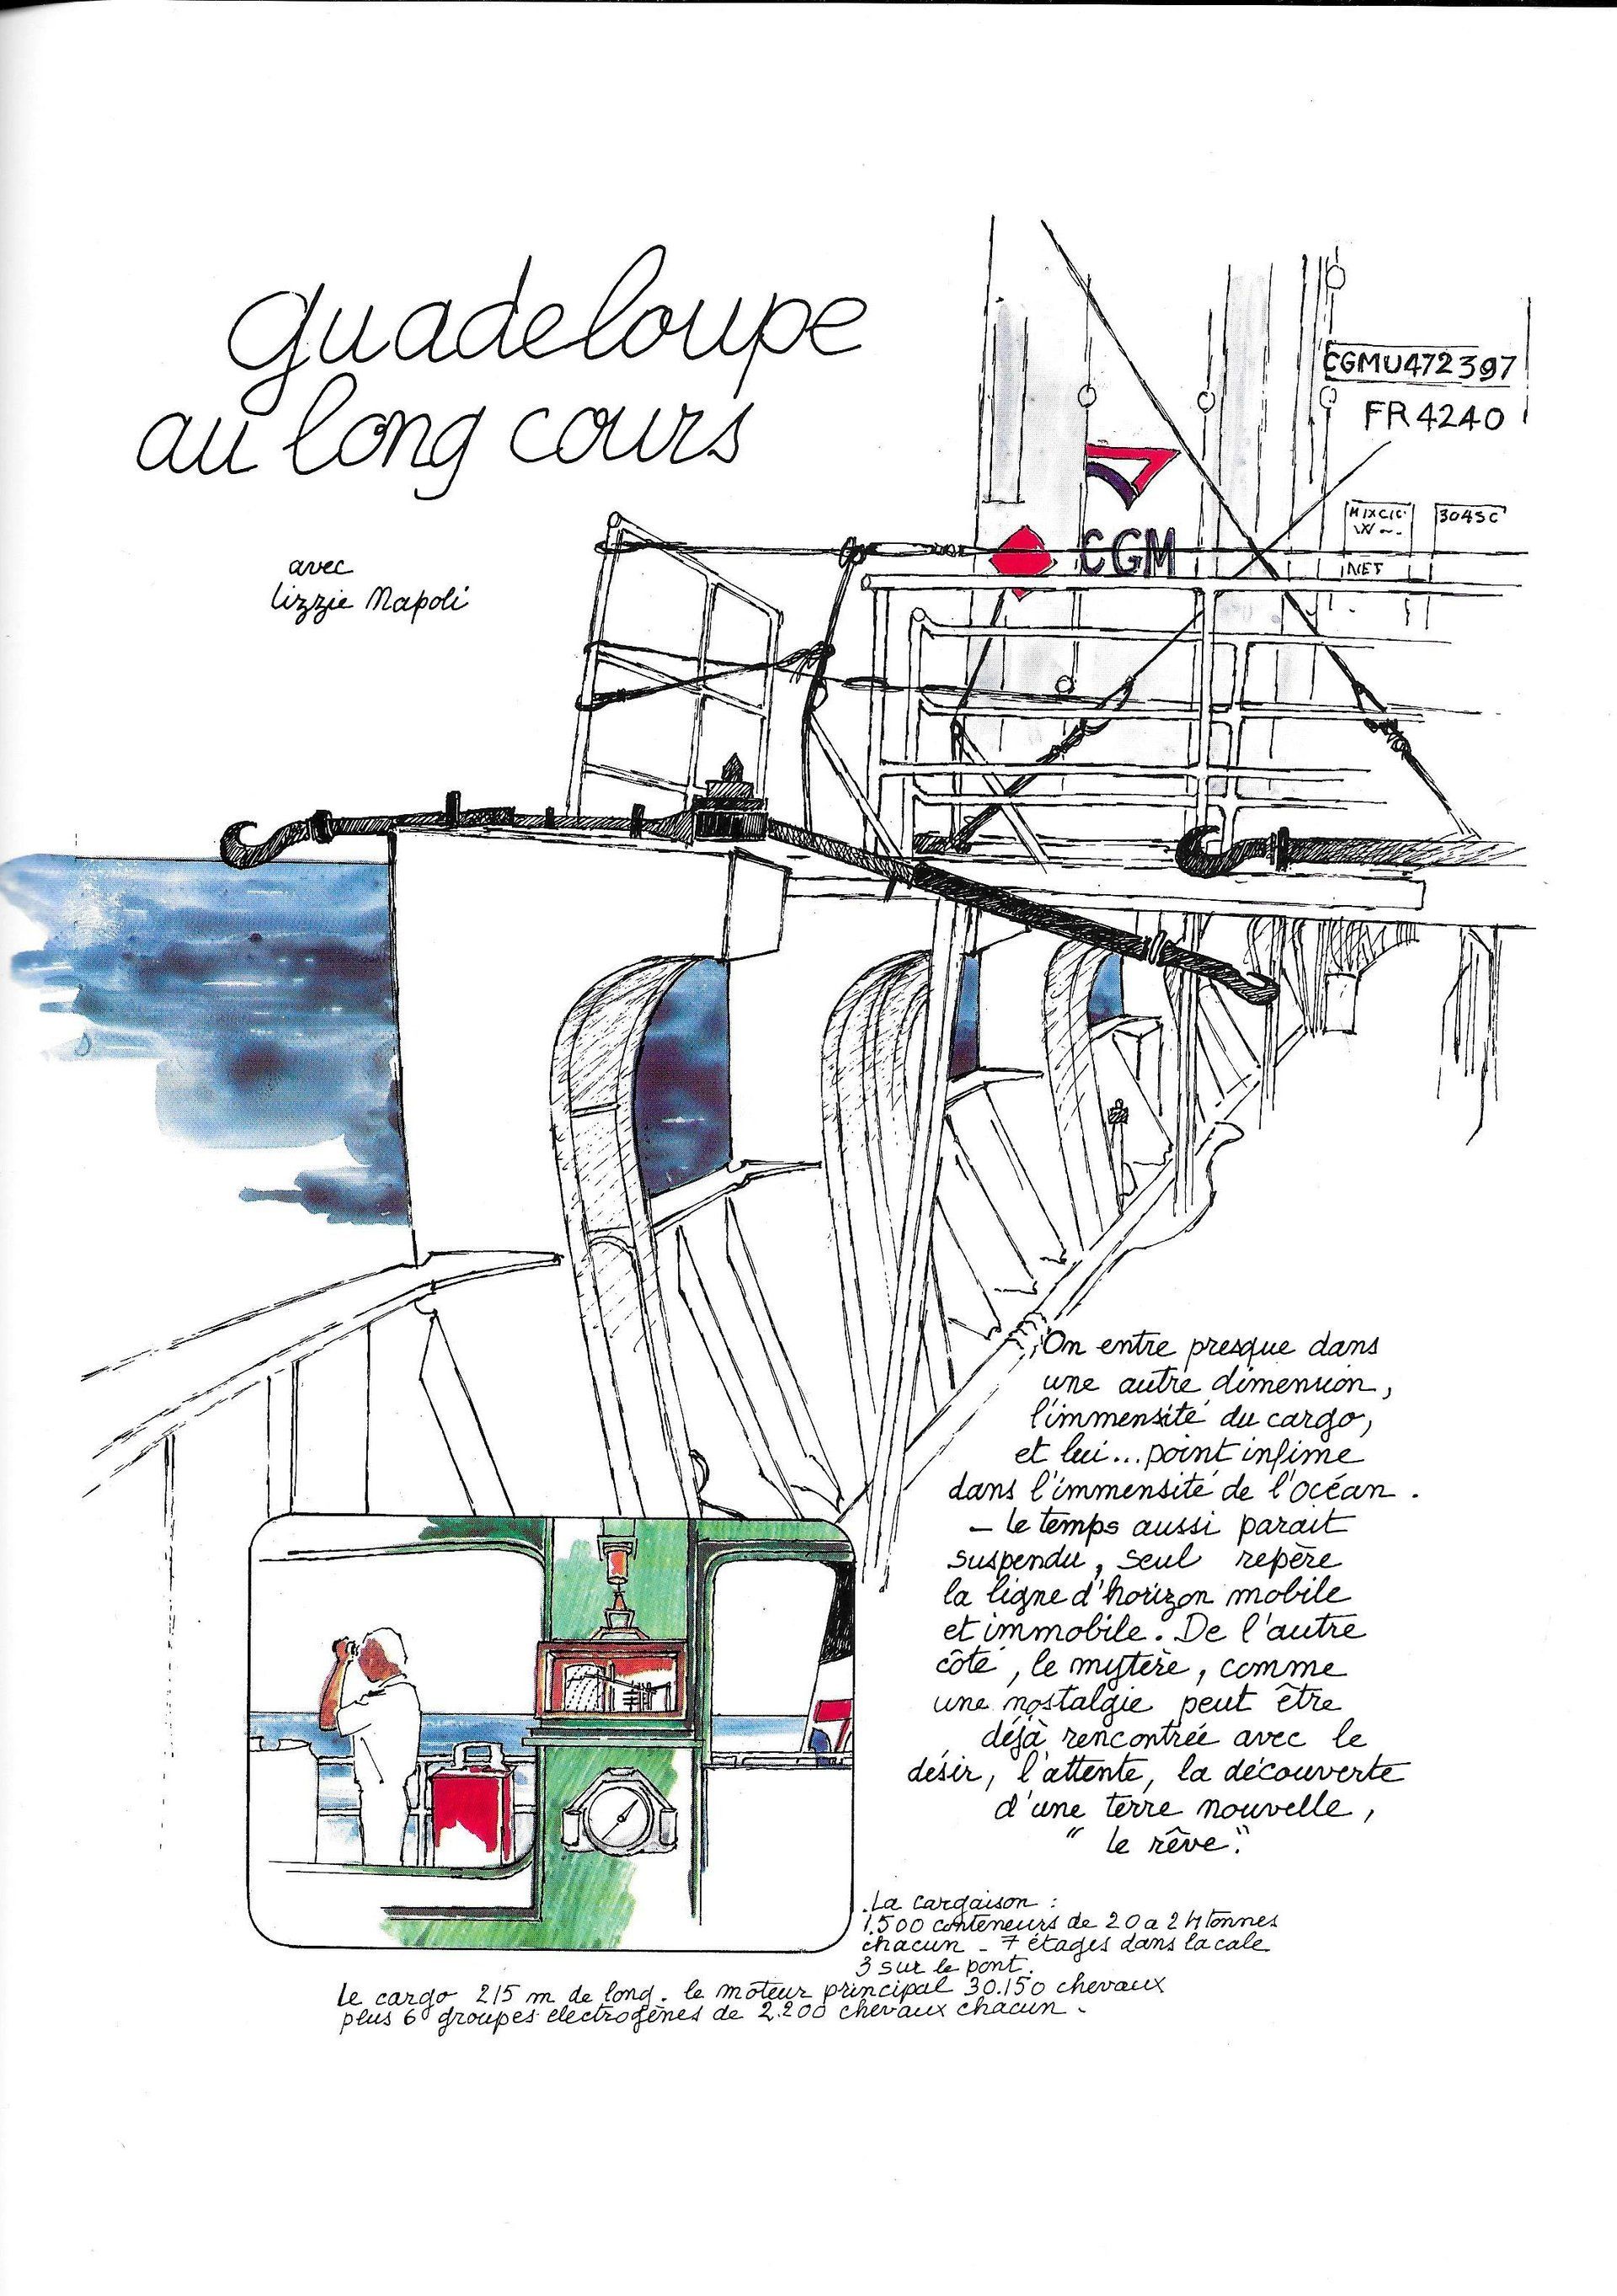 guadeloupe
au long cours
avec
lizzie Napoli
CGMU472397
FR 4240
304SC
NET
CGM
On entre presque dans
une autre dimension,
l'immensité du cargo,
et lui... point infime
dans l'immensité de l'océan.
- le temps aussi parait
suspendu, seul repère
la ligne d'horizon mobile
et immobile. De l'autre
côté, le mystère, comme
une nostalgie peut être
déjà rencontrée avec le
désir, l'attente, la découverte
d'une terre nouvelle,
" le rêve."
La cargaison :
1.500 conteneurs de 20 a 24 tonnes
chacun - 7 étages dans la cale
3 sur le pont.
le cargo 215 m de long. le moteur principal 30.150 chevaux
plus 6 groupes électrogènes de 2.200 chevaux chacun -